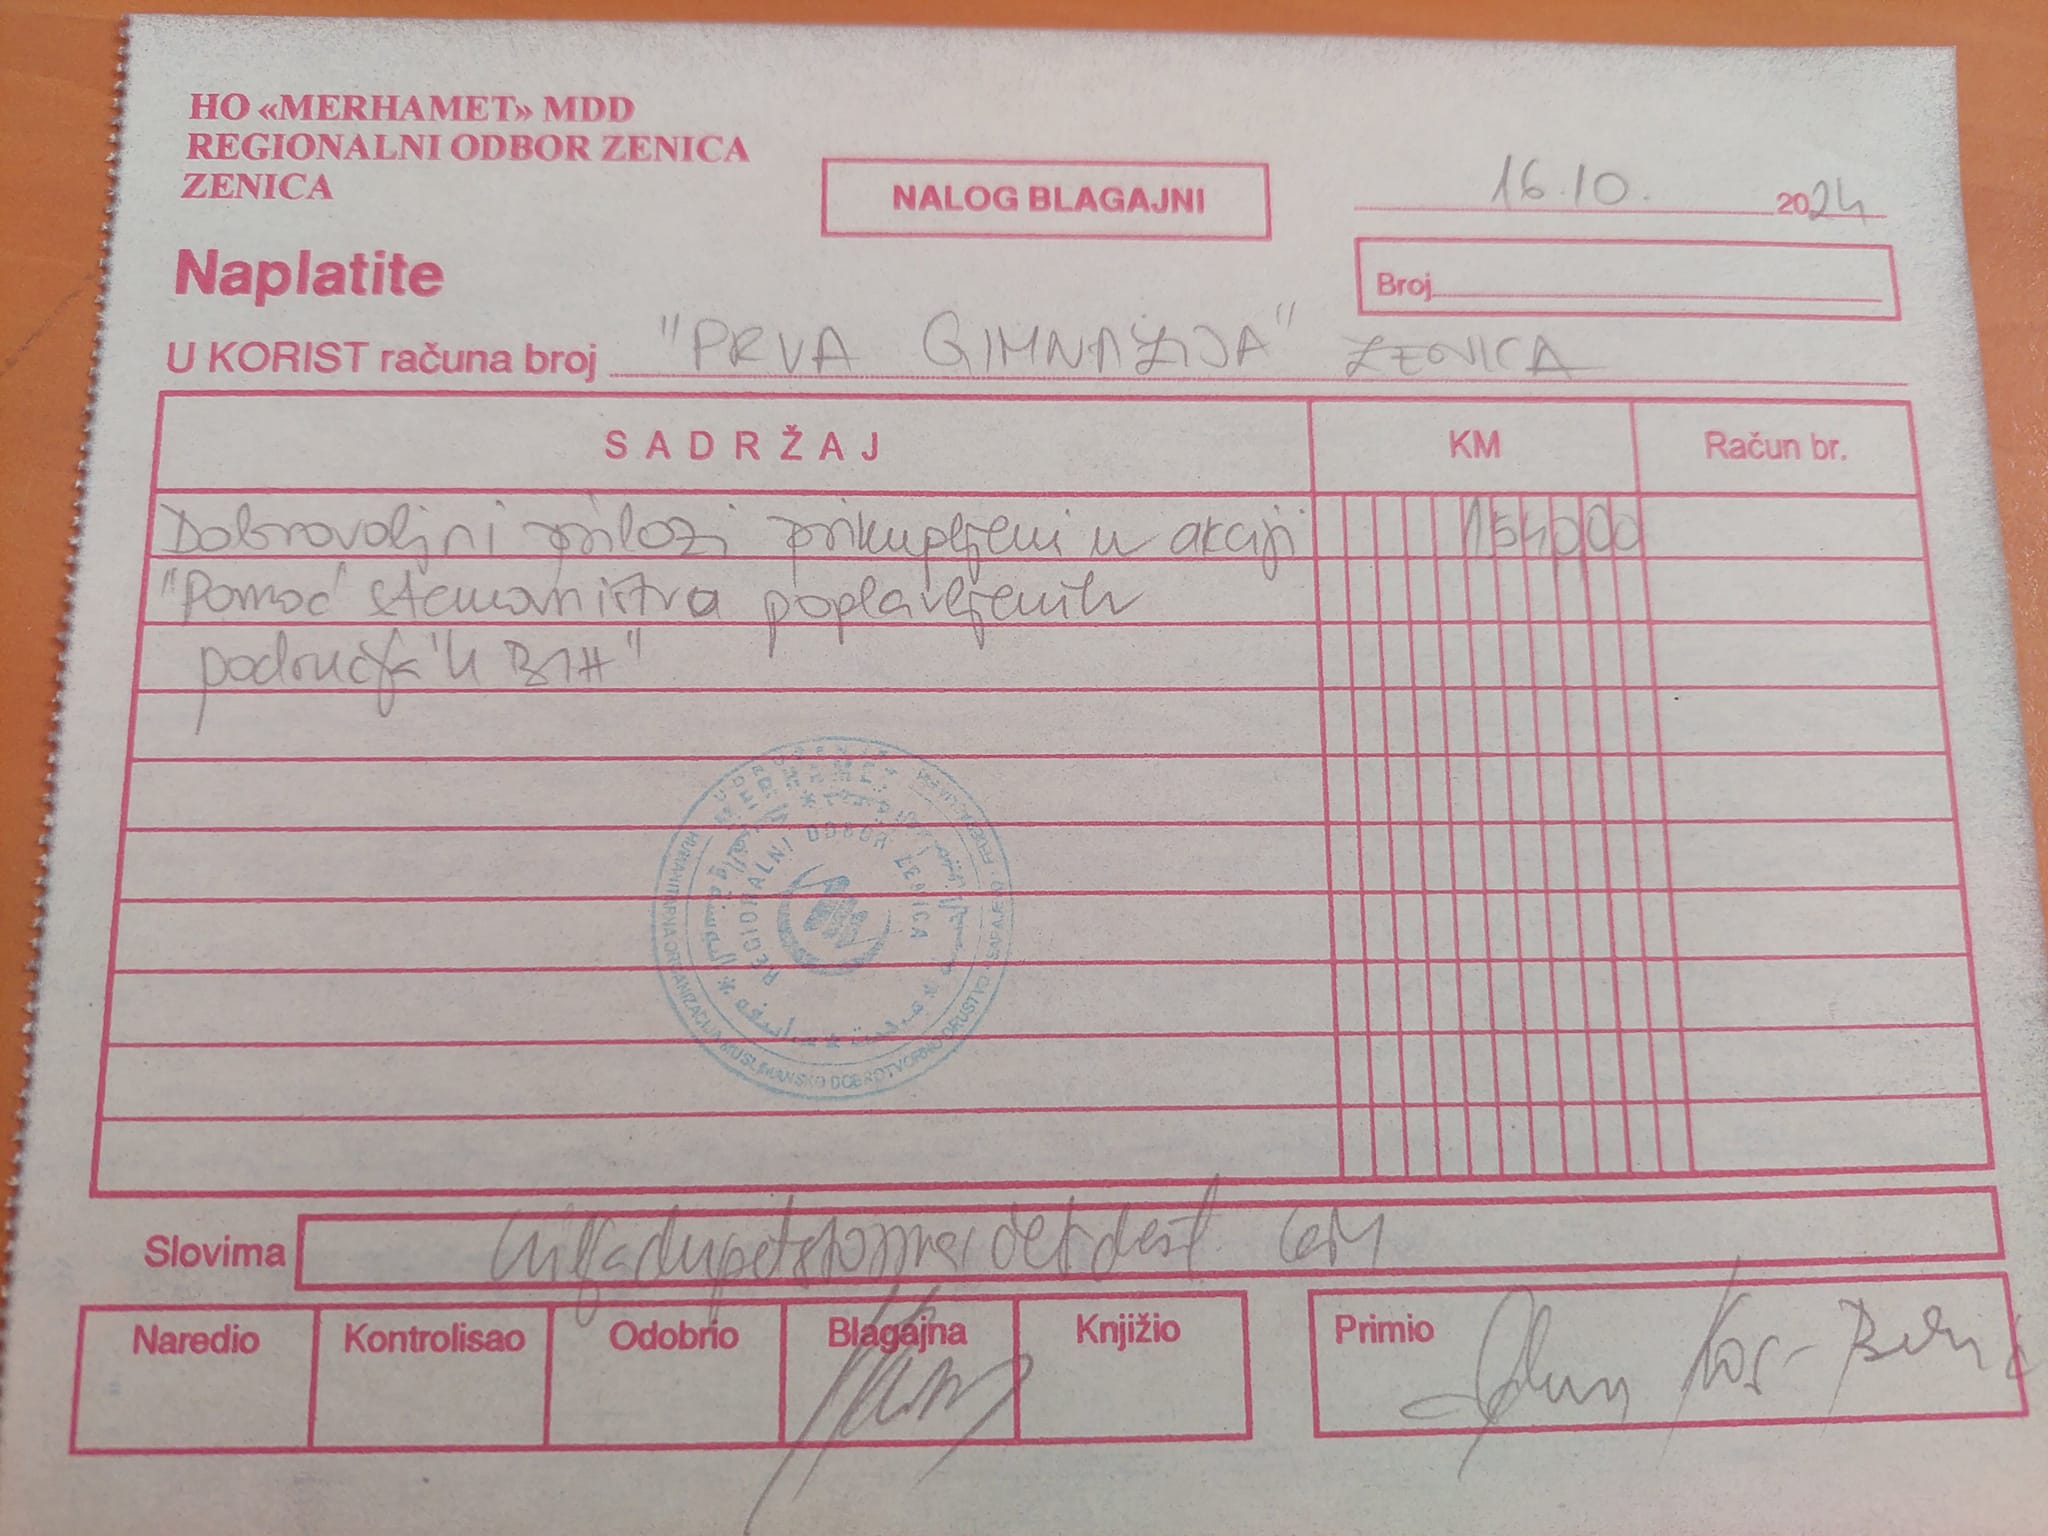 HO «MERHAMET» MDD
REGIONALNI ODBOR ZENICA
ZENICA
NALOG BLAGAJNI
16.10. 2024
Naplatite
Broj
U KORIST računa broj "PRVA GIMNAZIJA" ZENICA
SADRŽAJ KM Račun br.
Dobrovoljni prilozi prikupljeni u akciji 154000
"Pomoć stanovništva poplavljenih
područja "u BIH"
HUMANITARNA ORGANIZACIJA MUSLIMANSKO DOBROTVORNO DRUŠTVO
REGIONALNI ODBOR ZENICA
Slovima KM
Naredio Kontrolisao Odobrio Blagajna Knjižio Primio